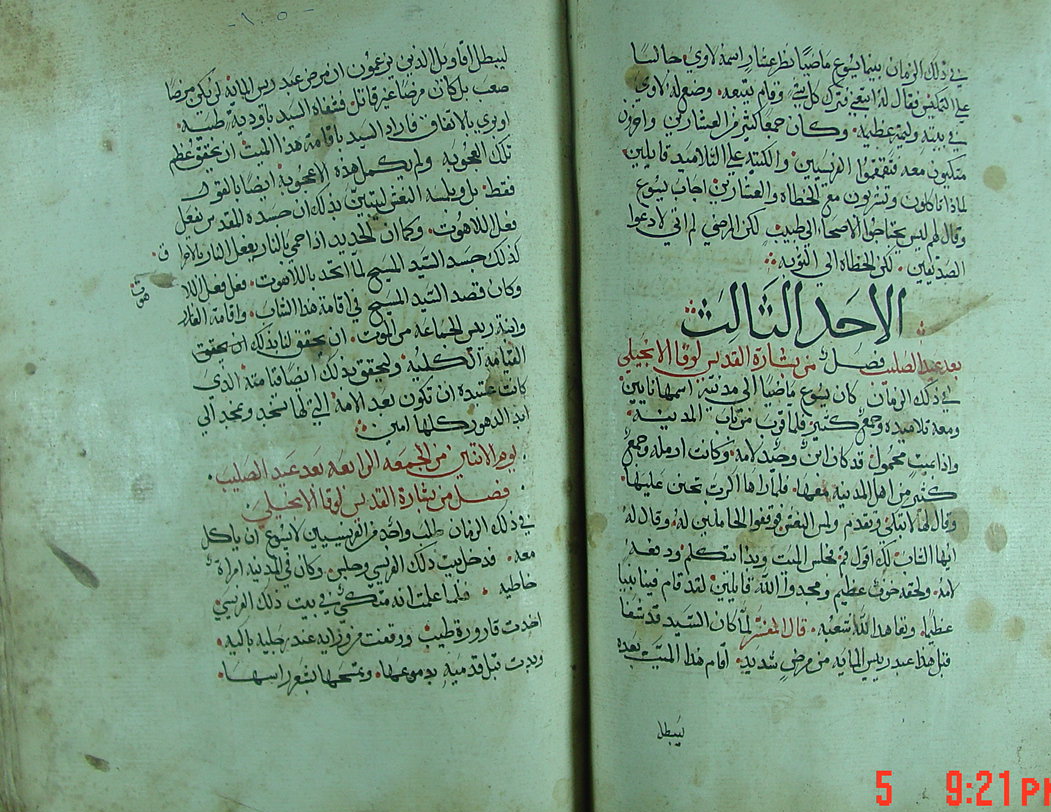 في ذلك الزمان بينما يسوع ماضيًا نظر عشار اسمه لاوي جالسا
على التمكيس فقال له اتبعني فترك كل شي وقام يتبعه وصنع له لاوي
في بيته وليمة عظيمه وكان جمعا كثير من العشارين واخرون
متكيون معه فتقمقوا الفريسيين والكتبه على التلاميد قايلين
لمادا تاكلون وتشربون مع الخطاه والعشارين اجاب يسوع
وقال لهم ليس يحتاجوا الاصحا الى طبيب لكن المرضي لم اتي لادعوا
الصديقين لكن الخطاه الي التوبه
الاحد الثالث
بعد عيد الصليب فصل من بشارة القديس لوقا الانجيلي
في ذلك الزمان كان يسوع ماضيا الى مدينة اسمها نايين
ومعه تلاميده وجمع كثير فلما قرب من باب المدينه
واذا ميت محمول قد كان ابن وحيد لامه وكانت ارمله وجمع
كثير من اهل المدينه معها فلما راها الرب تحنن عليها
وقال لها لا تبكي وتقدم ولمس النعش فوقفوا الحاملين له وقال له
ايها الشاب لك اقول قم فجلس الميت وبدا يتكلم ودفعه
لامه ولحقه خوف عظيم ومجدوا الله قايلين لقد قام فينا نبيا
عظيما وتعاهد الله شعبه قال المفسر لما كان السيد قد شفا
قبل هذا عبد ريس المايه من مرض شديد اقام هذا الميت بعده
ليبطل
- ١٥٠ -
ليبطل اقاويل الذين يزعمون ان مرض عبد ريس المايه لم يكن مرضا
صعب بل كان مرضا غير قاتل فشفاه السيد بأودية طبيه
اوبري بالاتفاق فاراد السيد باقامة هذا الميت ان يحقق عظم
تلك العجوبه ولم يكمل هذه الاعجوبة ايضا بالقول
فقط بل وبلمسه النعش ليتبين بذلك ان جسده المقدس يفعل
فعل اللاهوت وكما ان الحديد اذا حمي بالنار يفعل النار بالاحراق
كذلك جسد السيد المسيح لما اتحد باللاهوت فعل فعل اللا
هوت
وكان قصد السيد المسيح في اقامة هذا الشاب واقامة العازر
وابنة ريس الجماعه من الموت ان يحقق لنا بذلك ان يحقق
القيامه الكليه وليحقق بذلك ايضا قيامته الذي
كانت عتيده ان تكون بعد الامه التي لها نسجد ونمجد الي
ابد الدهور كلها امين
يوم الاتنين من الجمعه الرابعه بعد عيد الصليب
فصل من بشارة القديس لوقا الانجيلي
في ذلك الزمان طلب واحد من الفريسيين لايسوع ان ياكل
معه فدخل بيت ذلك الفريسي وجلس وكان في المدينه امراة
خاطيه فلما علمت انه متكي في بيت ذلك الفريسي
اخدت قارورة طيب ووقفت من ورايه عند رجليه باكيه
وبدت تبل قدميه بدموعها وتمسحها بشعر راسها
5 9:21 PM